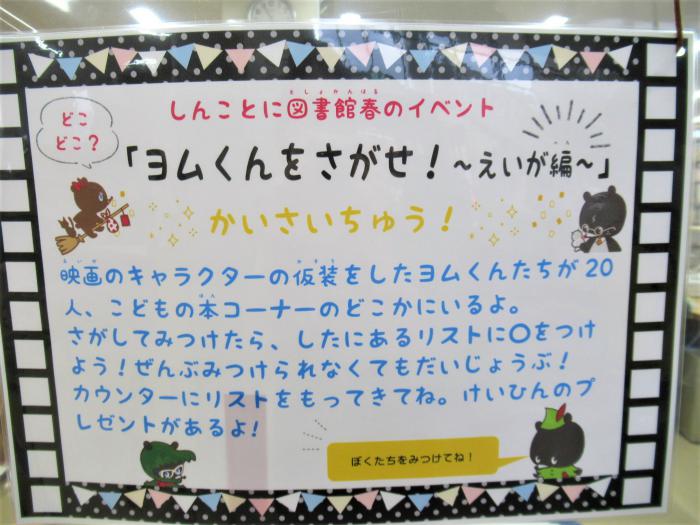 しんことに図書館春のイベント
どこ
どこ？
「ヨムくんをさがせ！～えいが編～」
かいさいちゅう！
映画のキャラクターの仮装をしたヨムくんたちが20
人、こどもの本コーナーのどこかにいるよ。
さがしてみつけたら、したにあるリストに〇をつけ
よう！ぜんぶみつけられなくてもだいじょうぶ！
カウンターにリストをもってきてね。けいひんのプ
レゼントがあるよ！
ぼくたちをみつけてね！